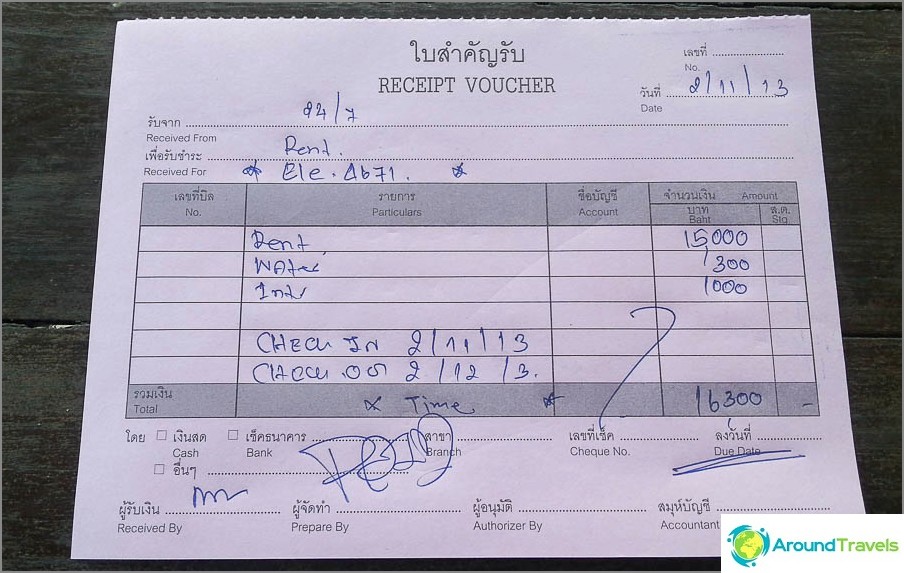 ใบสำคัญรับ
เลขที่ ....................
No.
RECEIPT VOUCHER
วันที่ 2/11/13
Date
รับจาก 24/7
Received From
เพื่อรับชำระ Rent.
Received For * Ele. 4671. *
เลขที่บิล รายการ ชื่อบัญชี จำนวนเงิน Amount
No. Particulars Account บาท ส.ต.
Baht Stg
Rent 15000
Water 300
Int 1000
CHECK IN 2/11/13
CHECK OUT 2/12/13.
รวมเงิน
Total * Time * 16300 -
โดย เงินสด เช็คธนาคาร สาขา เลขที่เช็ค ลงวันที่
Cash Bank Branch Cheque No. Due Date
อื่นๆ
ผู้รับเงิน ผู้จัดทำ ผู้อนุมัติ สมุห์บัญชี
Received By Prepare By Authorizer By Accountant
AroundTravels